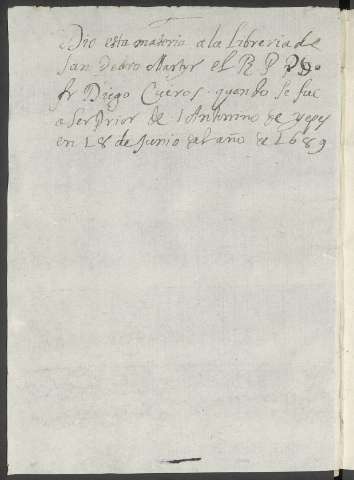 Dio esta materia a la Libreria de
San Pedro Martyr el R P Po
fr Diego Cueros quando se fue
a ser Prior de S Antonino de yepes
en 18 de Junio del año de 1689